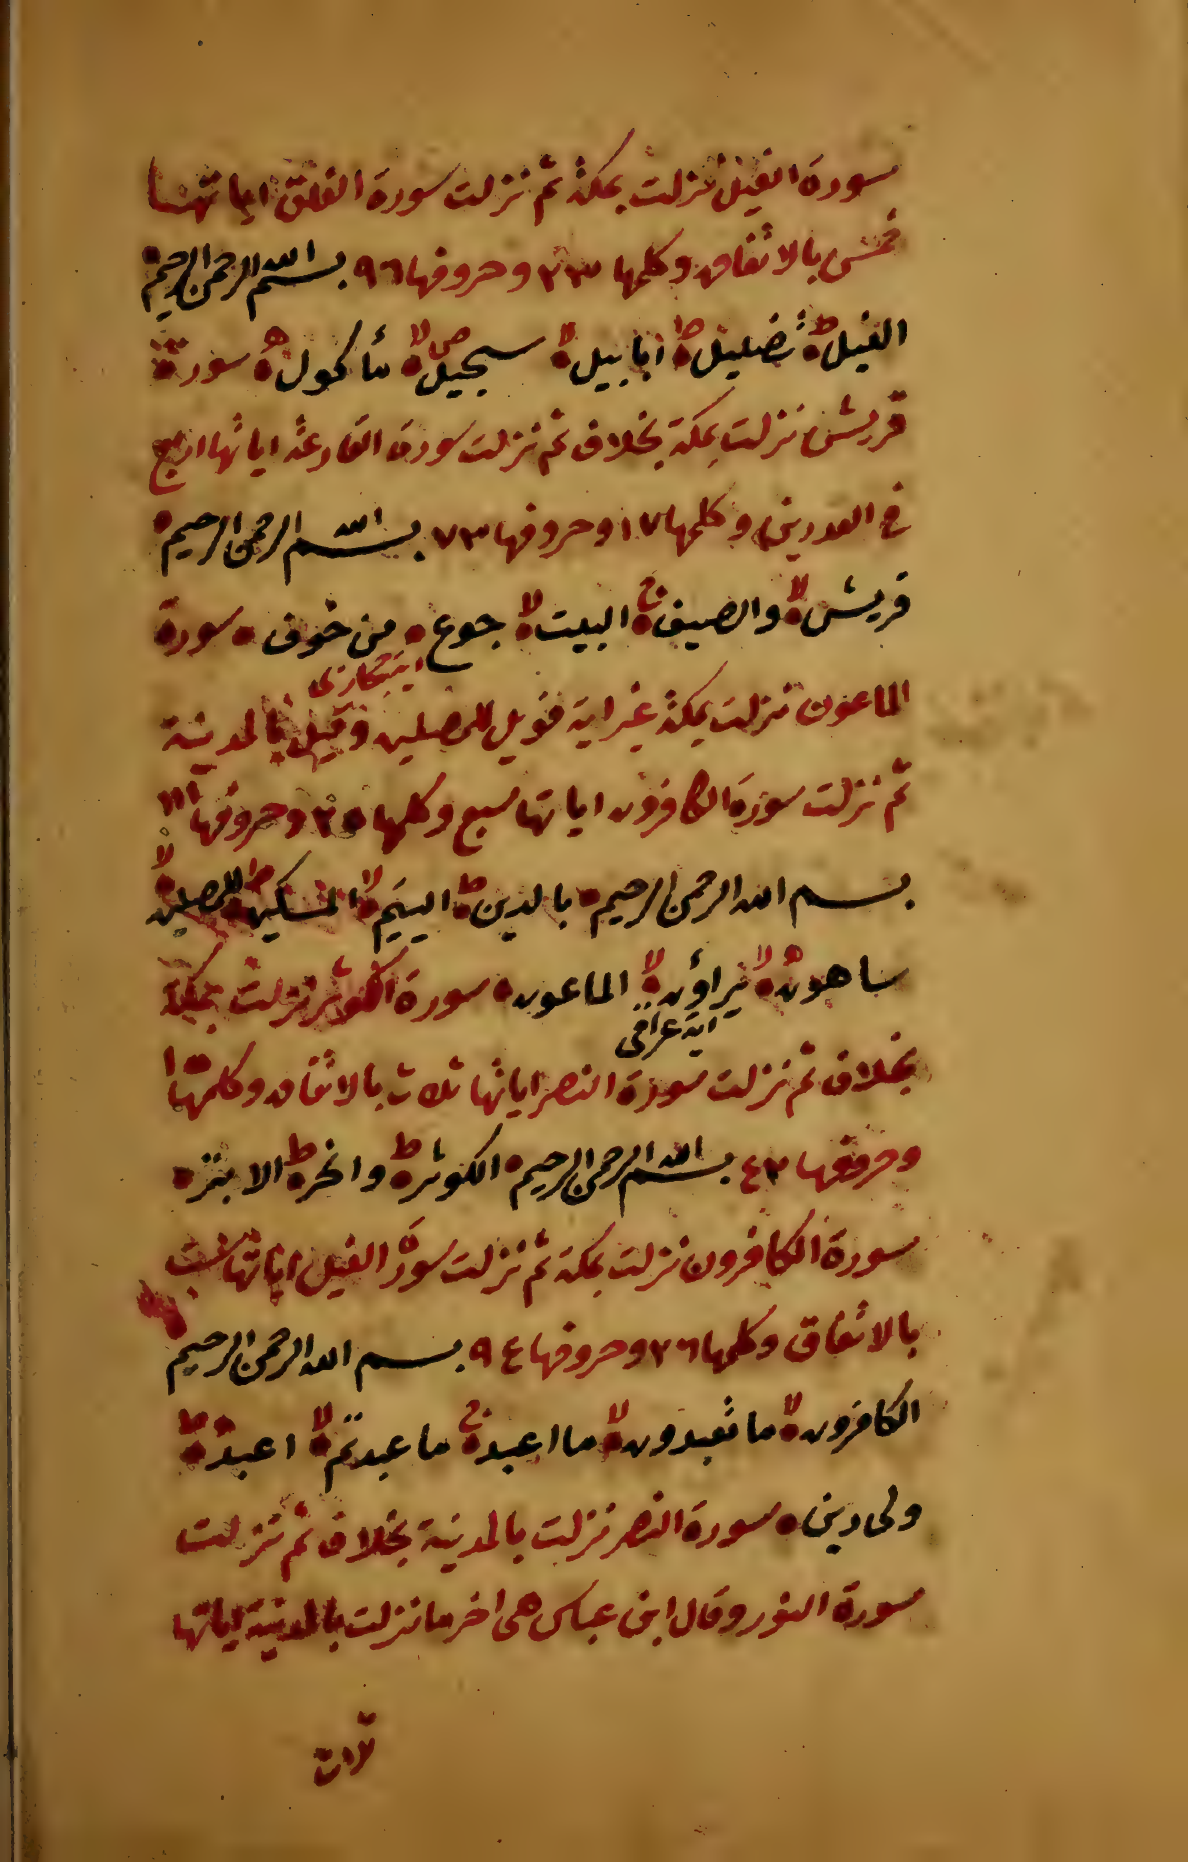 سورة الفيل نزلت بمكة ثم نزلت سورة الفلق اياتها
خمس بالاتفاق وكلمها ٢٣ وحروفها ٩٦ بسم الله الرحمن الرحيم
الفيل ط تضليل ط ابابيل لا سجيل ص لا مأكول ه سورة
قريش نزلت بمكة بخلاف ثم نزلت سورة القارعة اياتها اربع
في وكلمها ١٧ وحروفها ٧٣ بسم الله الرحمن الرحيم
قريش لا والصيف ج البيت لا جوع من خوف سورة
اية حجازى
الماعون نزلت بمكة غير اية فويل للمصلين وقيل بالمدينة
ثم نزلت سورة الكافرون اياتها سبع وكلمها ٢٥ وحروفها ١١١
بسم الله الرحمن الرحيم بالدين ط اليتيم لا المسكين ط للمصلين لا
ساهون ه لا يراؤن لا الماعون سورة الكوثر نزلت بمكة
اية عراقى
بخلاف ثم نزلت سورة النصر اياتها ثلاث بالاتفاق وكلمها ١٠
وحروفها ٤٢ بسم الله الرحمن الرحيم الكوثر ط وانحر ط الابتر
سورة الكافرون نزلت بمكة ثم نزلت سورة الفيل اياتها ست
بالاتفاق وكلمها ٢٦ وحروفها ٩٤ بسم الله الرحمن الرحيم
الكافرون لا ما تعبدون لا ما اعبد ج ما عبدتم لا اعبد ط
ولى دين سورة النصر نزلت بالمدينة بخلاف ثم نزلت
سورة النور وقال ابن عباس هى اخر ما نزلت بالمدينة اياتها
ثلاث